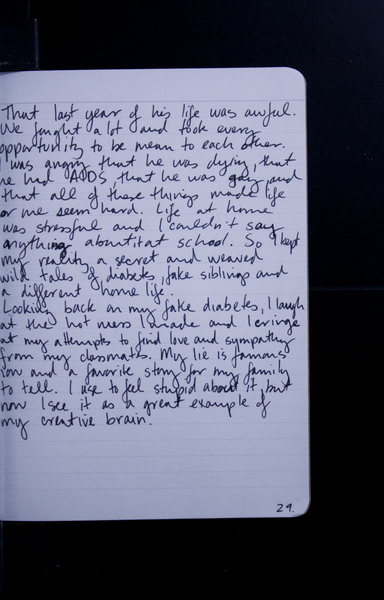 That last year of his life was awful.
We fought a lot and took every
opportunity to be mean to each other.
I was angry that he was dying, that
he had AIDS, that he was gay, and
that all of these things made life
or me seem hard. Life at home
was stressful and I couldn't say
anything about it at school. So I kept
my reality a secret and weaved
wild tales of diabetes, fake siblings and
a different home life.
Looking back on my fake diabetes, I laugh
at the hot mess I made and I cringe
at my attempts to find love and sympathy
from my classmates. My lie is famous
now and a favorite story for my family
to tell. I use to feel stupid about it, but
now I see it as a great example of
my creative brain.
29.